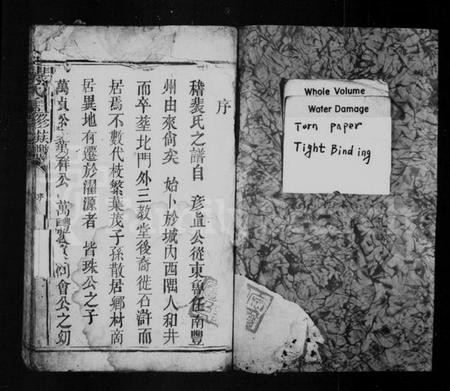 序
稽裴氏之譜自 彥直公從東魯任南豐
州由來尙矣 始卜於城內西隅人和井
而卒葬北門外三教堂後裔徙石滸而
居焉不數代枝繁葉茂子孫散居鄉村商
居異地有遷於濯源者 皆珠公之子
萬貞公 萬祥公 會公之幼
Whole Volume
Water Damage
Torn paper
Tight Binding